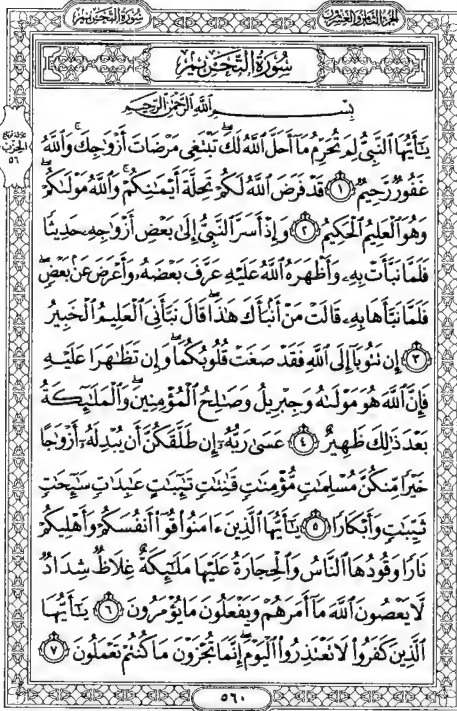 الجزء الثامن والعشرون
سورة التحريم
سُورَةُ التَّحْرِيمِ
بِسْمِ ٱللَّهِ ٱلرَّحْمَٰنِ ٱلرَّحِيمِ
يَٰٓأَيُّهَا ٱلنَّبِىُّ لِمَ تُحَرِّمُ مَآ أَحَلَّ ٱللَّهُ لَكَۖ تَبْتَغِى مَرْضَاتَ أَزْوَٰجِكَۚ وَٱللَّهُ
غَفُورٌ رَّحِيمٌ ١ قَدْ فَرَضَ ٱللَّهُ لَكُمْ تَحِلَّةَ أَيْمَٰنِكُمْۚ وَٱللَّهُ مَوْلَىٰكُمْۖ
وَهُوَ ٱلْعَلِيمُ ٱلْحَكِيمُ ٢ وَإِذْ أَسَرَّ ٱلنَّبِىُّ إِلَىٰ بَعْضِ أَزْوَٰجِهِۦ حَدِيثًا
فَلَمَّا نَبَّأَتْ بِهِۦ وَأَظْهَرَهُ ٱللَّهُ عَلَيْهِ عَرَّفَ بَعْضَهُۥ وَأَعْرَضَ عَنۢ بَعْضٍۖ
فَلَمَّا نَبَّأَهَا بِهِۦ قَالَتْ مَنْ أَنۢبَأَكَ هَٰذَاۖ قَالَ نَبَّأَنِىَ ٱلْعَلِيمُ ٱلْخَبِيرُ
٣ إِن تَتُوبَآ إِلَى ٱللَّهِ فَقَدْ صَغَتْ قُلُوبُكُمَاۖ وَإِن تَظَٰهَرَا عَلَيْهِ
فَإِنَّ ٱللَّهَ هُوَ مَوْلَىٰهُ وَجِبْرِيلُ وَصَٰلِحُ ٱلْمُؤْمِنِينَۖ وَٱلْمَلَٰٓئِكَةُ
بَعْدَ ذَٰلِكَ ظَهِيرٌ ٤ عَسَىٰ رَبُّهُۥٓ إِن طَلَّقَكُنَّ أَن يُبْدِلَهُۥٓ أَزْوَٰجًا
خَيْرًا مِّنكُنَّ مُسْلِمَٰتٍ مُّؤْمِنَٰتٍ قَٰنِتَٰتٍ تَٰٓئِبَٰتٍ عَٰبِدَٰتٍ سَٰٓئِحَٰتٍ
ثَيِّبَٰتٍ وَأَبْكَارًا ٥ يَٰٓأَيُّهَا ٱلَّذِينَ ءَامَنُوا۟ قُوٓا۟ أَنفُسَكُمْ وَأَهْلِيكُمْ
نَارًا وَقُودُهَا ٱلنَّاسُ وَٱلْحِجَارَةُ عَلَيْهَا مَلَٰٓئِكَةٌ غِلَاظٌ شِدَادٌ
لَّا يَعْصُونَ ٱللَّهَ مَآ أَمَرَهُمْ وَيَفْعَلُونَ مَا يُؤْمَرُونَ ٦ يَٰٓأَيُّهَا
ٱلَّذِينَ كَفَرُوا۟ لَا تَعْتَذِرُوا۟ ٱلْيَوْمَۖ إِنَّمَا تُجْزَوْنَ مَا كُنتُمْ تَعْمَلُونَ ٧
الحزب
٥٦
٥٦٠